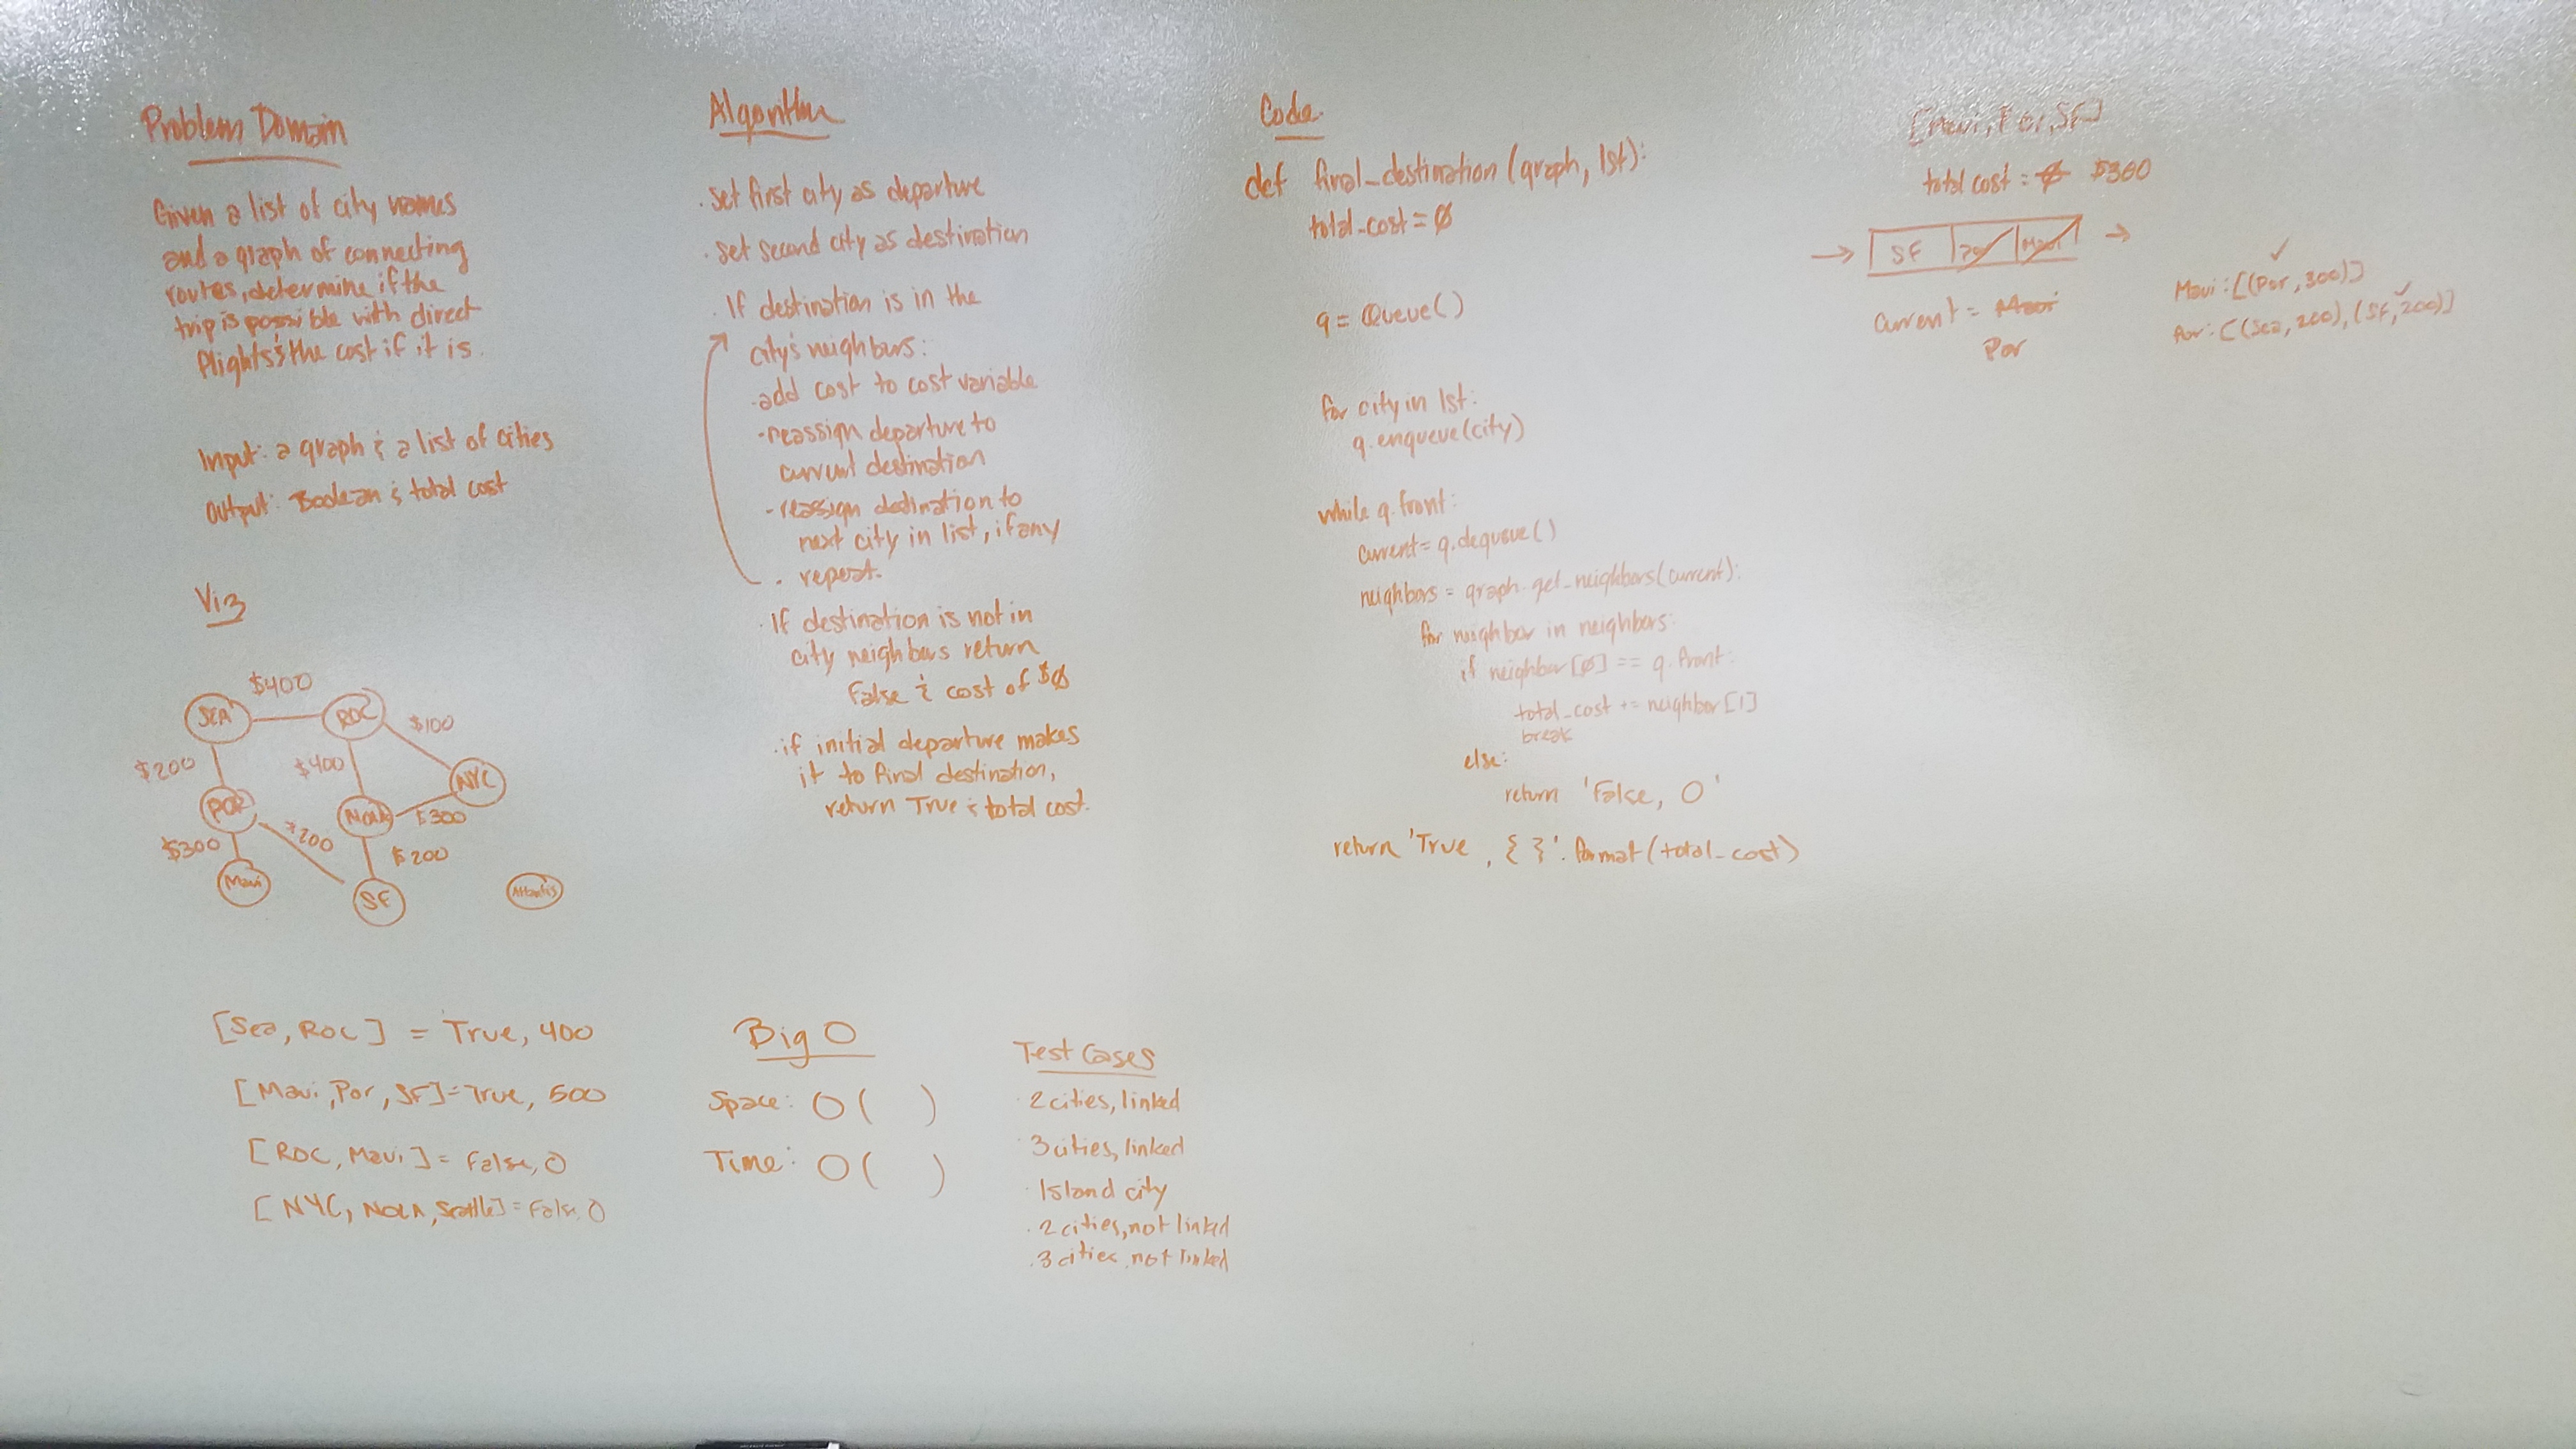 Problem Domain
Given a list of city names
and a graph of connecting
routes, determine if the
trip is possible with direct
flights & the cost if it is.
Input: a graph & a list of cities
Output: Boolean & total cost
Viz
$400
SEA
ROC
$100
$200
$400
NYC
POR
NOLA
$300
$300
$200
$200
Maui
SF
Atlantis
[Sea, ROC] = True, 400
[Maui, Por, SF] = True, 500
[ROC, Maui] = False, 0
[NYC, NOLA, Seattle] = False, 0
Algorithm
. set first city as departure
. set second city as destination
. If destination is in the
city's neighbors:
- add cost to cost variable
- reassign departure to
current destination
- reassign destination to
next city in list, if any
. repeat.
. If destination is not in
city neighbors return
False & cost of $0
. if initial departure makes
it to final destination,
return True & total cost.
Big O
Space: O( )
Time: O( )
Test Cases
. 2 cities, linked
. 3 cities, linked
. Island city
. 2 cities, not linked
. 3 cities, not linked
Code
def final_destination (graph, lst):
total_cost = 0
q = Queue()
for city in lst:
q.enqueue(city)
while q.front:
current = q.dequeue()
neighbors = graph.get_neighbors(current):
for neighbor in neighbors:
if neighbor[0] == q.front:
total_cost += neighbor[1]
break
else:
return 'False, 0'
return 'True, { }'.format(total_cost)
[Maui, Por, SF]
total cost = 0 $300
→ SF Por Maui →
current = Maui
Por
Maui: [(Por, 300)]
Por: [(Sea, 200), (SF, 200)]